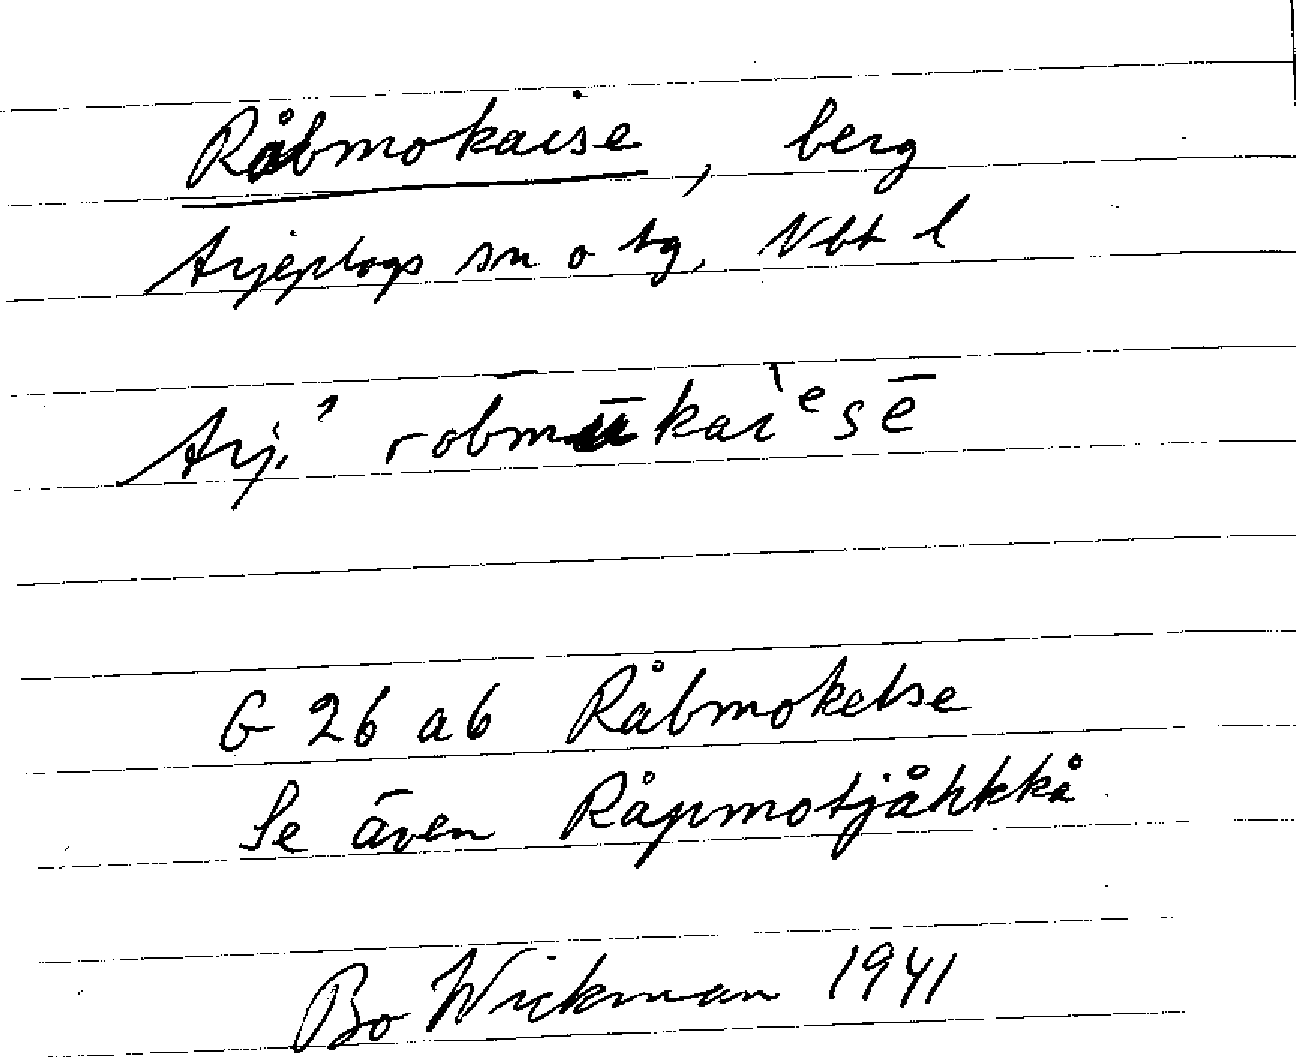 Råbmokaise, berg
Arjeplogs sn o tg, Nbt l
Arj. robmūkaiᵉsē
G 26 ab Råbmokelse
Se även Råpmotjåhkkå
Bo Wickman 1941